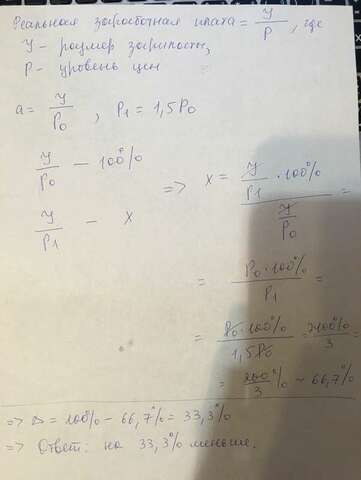 Реальная заработная плата = У/Р, где
У - размер зарплаты,
Р - уровень цен
a = У/P₀ , P₁ = 1,5P₀
У/P₀ — 100%
У/P₁ — X
=> X = (У/P₁ · 100%) / (У/P₀) =
= P₀·100% / P₁ =
= P₀·100% / 1,5P₀ = 2·100% / 3 =
= 200/3 % ~ 66,7%
=> Δ = 100% - 66,7% = 33,3%
=> Ответ: на 33,3% меньше.